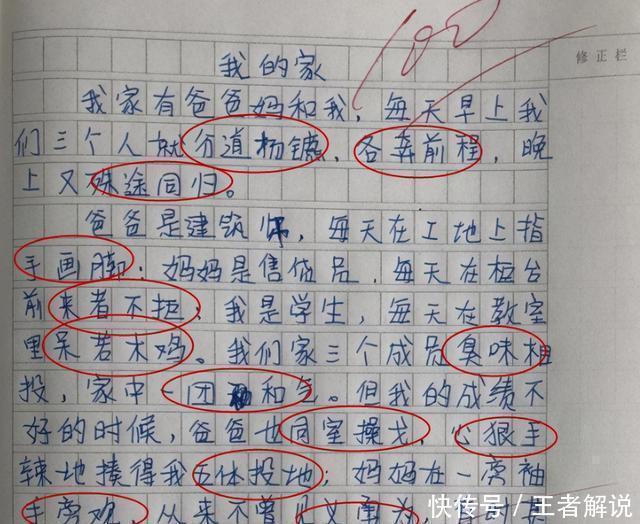 100
修正栏
我的家
我家有爸爸妈和我，每天早上我
们三个人就分道杨镳，各奔前程，晚
上又殊途同归。
爸爸是建筑师，每天在工地上指
手画脚；妈妈是售货员，每天在柜台
前来者不拒，我是学生，每天在教室
里呆若木鸡。我们家三个成员臭味相
投，家中一团和气。但我的成绩不
好的时候，爸爸也同室操戈，心狠手
辣地揍得我五体投地；妈妈在一旁袖
手旁观，从来不曾见义勇为
快传号／王者解说